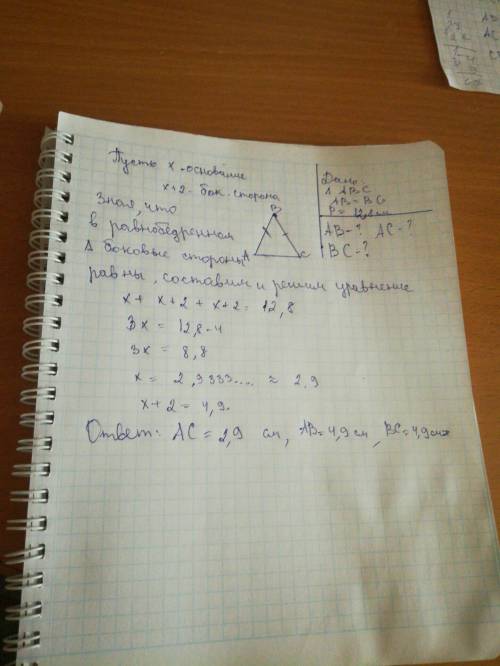 Пусть x - основание
x+2 - бок. сторона
Зная, что
в равнобедренном
Δ боковые стороны
равны, составим и решим уравнение
x + x+2 + x+2 = 12,8
3x = 12,8-4
3x = 8,8
x = 2,9333.... ≈ 2,9
x+2 = 4,9.
Ответ: AC = 2,9 см, AB=4,9 см, BC=4,9см
B
A
C
Дано:
Δ ABC
AB = BC
P = 12,8 см
AB-? AC-?
BC-?